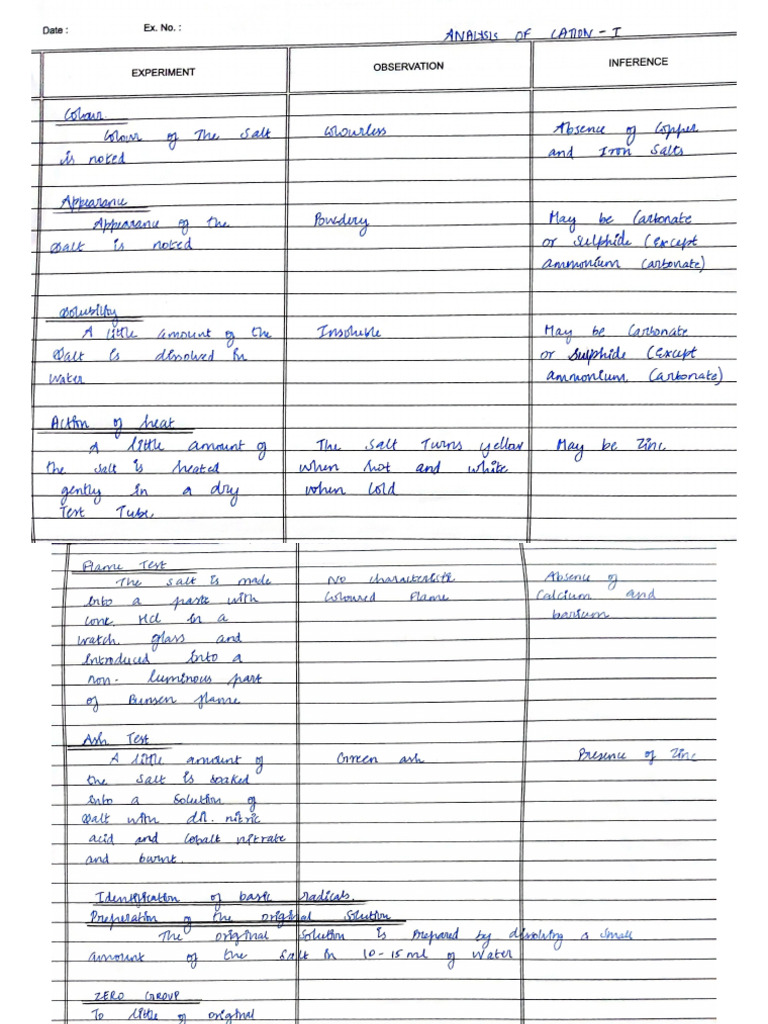 Date :
Ex. No. :
ANALYSIS OF CATION - I
EXPERIMENT
OBSERVATION
INFERENCE
Colour
Colour of The Salt
is noted
Colourless
Absence of Copper
and Iron Salts
Appearance
Appearance of the
Salt is noted
Powdery
May be Carbonate
or Sulphide (Except
ammonium Carbonate)
Solubility
A little amount of the
Salt is dissolved in
Water
Insoluble
May be Carbonate
or Sulphide (Except
ammonium Carbonate)
Action of heat
A little amount of
the Salt is heated
gently in a dry
Test Tube.
The Salt Turns yellow
when hot and white
when Cold
May be Zinc
Flame Test
The salt is made
into a paste with
conc. Hcl in a
watch glass and
introduced into a
non- luminous part
of Bunsen flame
No characteristic
Coloured Flame
Absence of
Calcium and
barium
Ash Test
A little amount of
the salt is soaked
into a solution of
Salt with dil. nitric
acid and Cobalt nitrate
and burnt.
Green ash
Presence of Zinc
Identification of basic radicals.
Preparation of the original Solution
The original Solution is Prepared by dissolving a small
amount of the Salt in 10-15 ml of Water
ZERO GROUP
To little of original